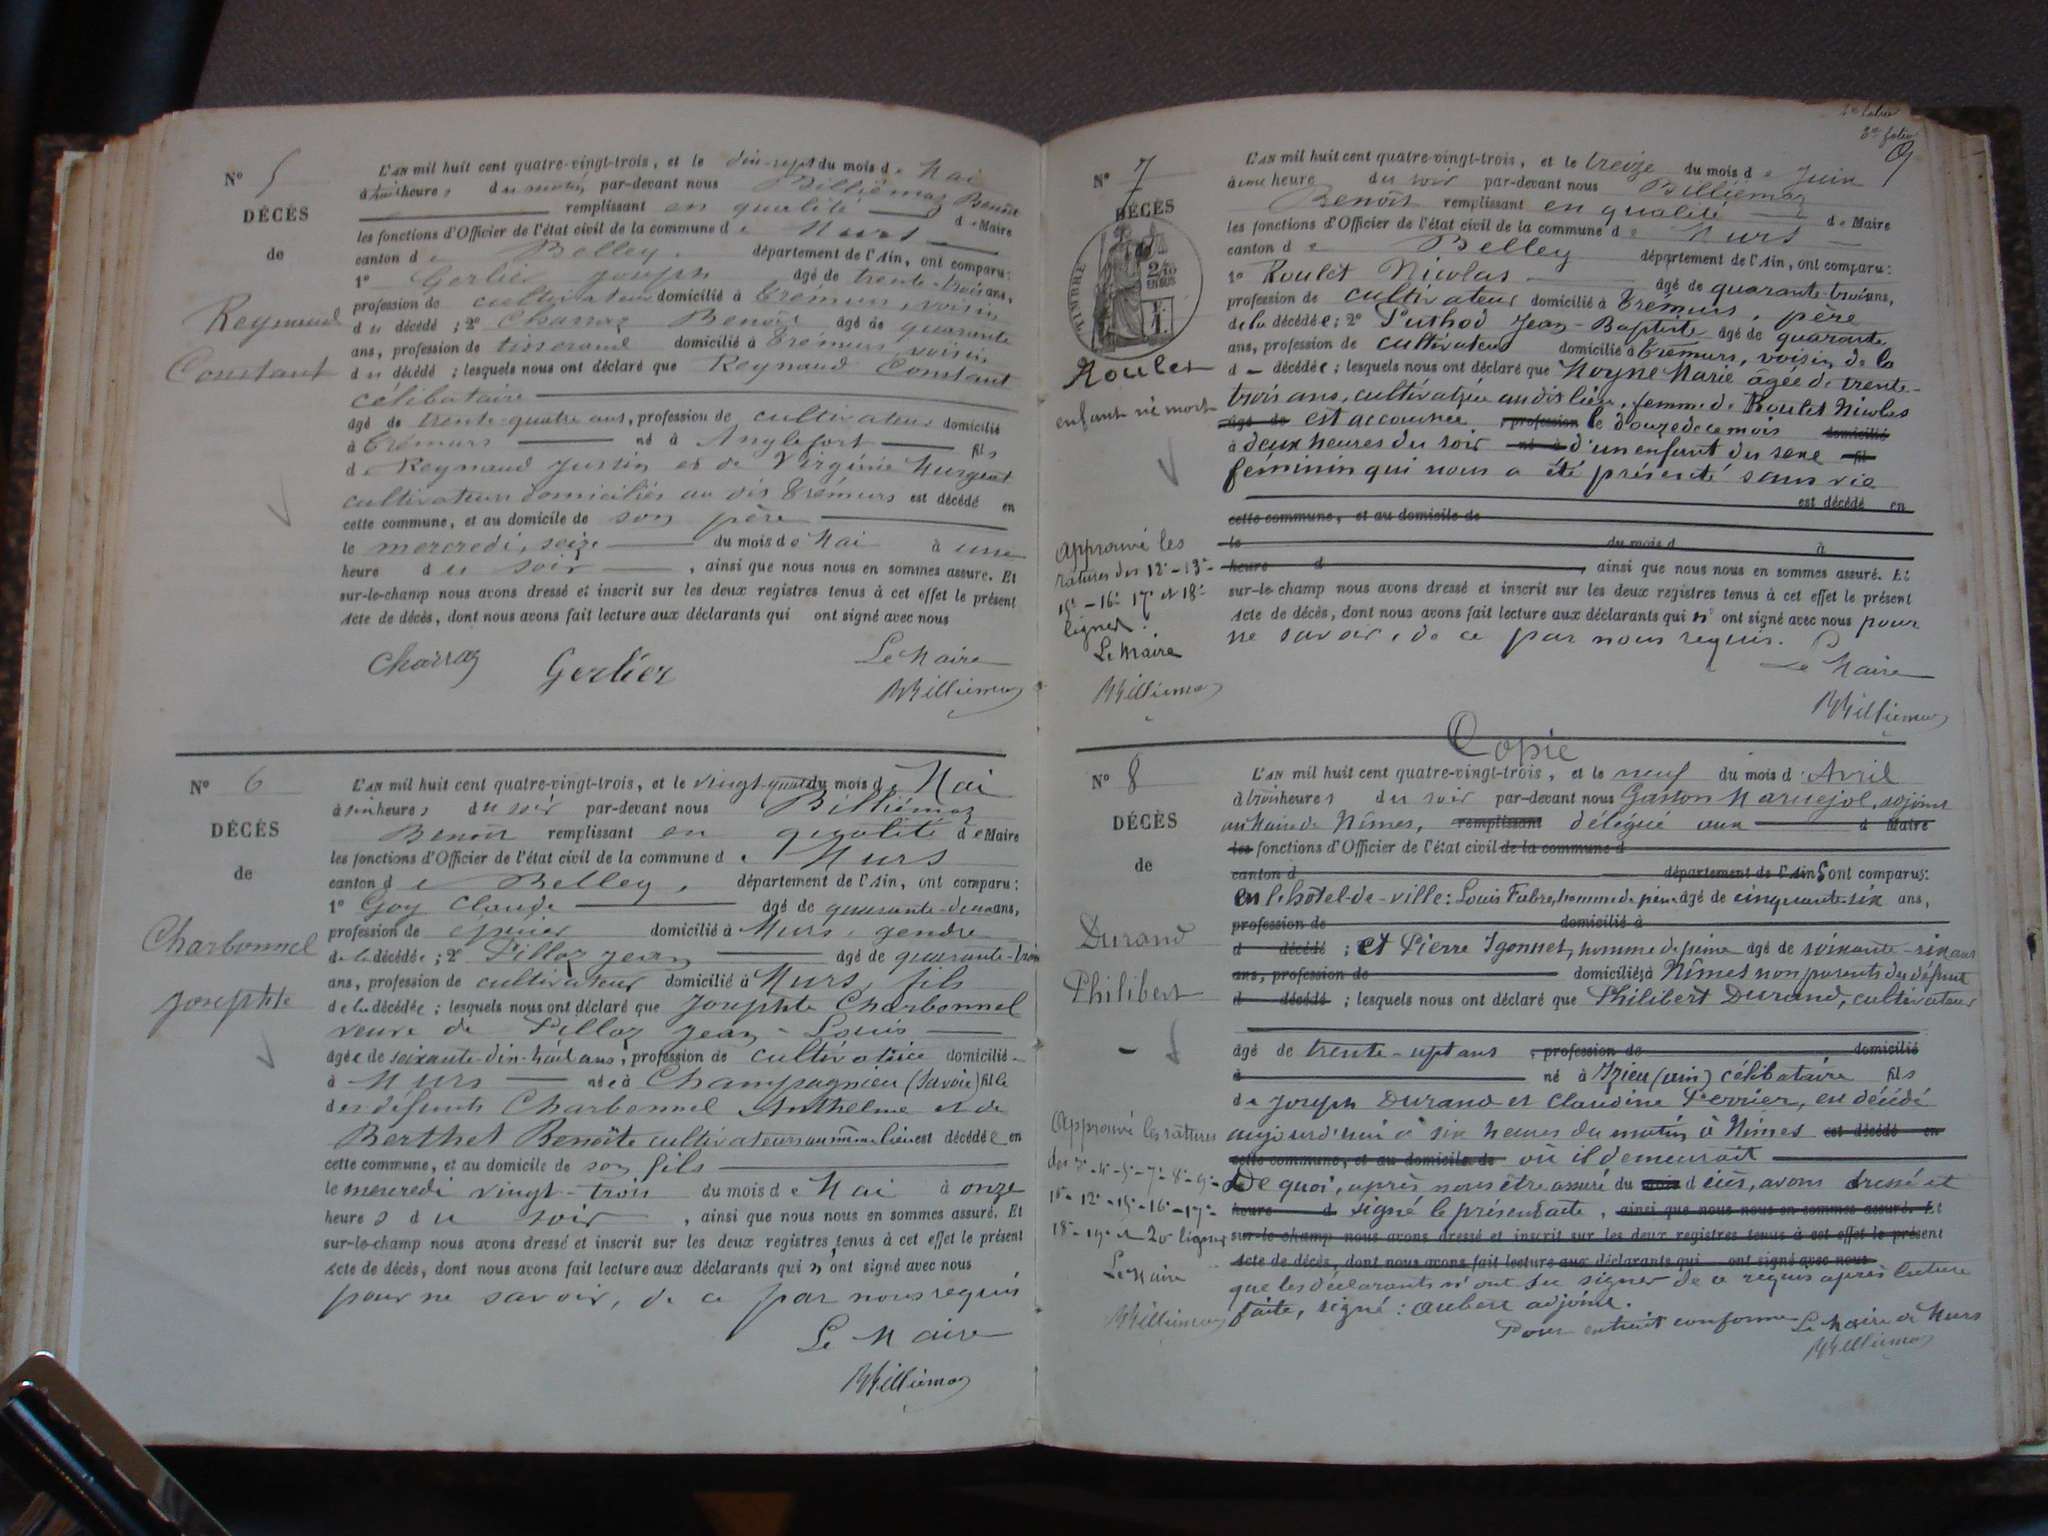 N° 5
DÉCÈS
de
Reynaud
Constant
L'AN mil huit cent quatre-vingt-trois, et le dix-sept du mois de Mai
à huit heures du matin par-devant nous Billiémaz Benoît
remplissant en qualité de Maire
les fonctions d'Officier de l'état civil de la commune de Murs
canton de Belley, département de l'Ain, ont comparu:
1° Gerlier Joseph âgé de trente-trois ans,
profession de cultivateur domicilié à Trémurs, voisin
du décédé; 2° Charraz Benoît âgé de quarante
ans, profession de tisserand domicilié à Trémurs voisin
du décédé; lesquels nous ont déclaré que Reynaud Constant
célibataire
âgé de trente-quatre ans, profession de cultivateur domicilié
à Trémurs né à Anglefort fils
de Reynaud Justin et de Virginie Murgent
cultivateurs domiciliés au dis Trémurs est décédé en
cette commune, et au domicile de son père
le mercredi, seize du mois de Mai à une
heure du soir, ainsi que nous nous en sommes assuré. Et
sur-le-champ nous avons dressé et inscrit sur les deux registres tenus à cet effet le présent
Acte de décès, dont nous avons fait lecture aux déclarants qui ont signé avec nous
Charraz Gerlier Le Maire
BBilliemaz
N° 6
DÉCÈS
de
Charbonnel
Josephte
L'AN mil huit cent quatre-vingt-trois, et le vingt-quatre du mois de Mai
à six heures du soir par-devant nous Billiémaz
Benoît remplissant en qualité de Maire
les fonctions d'Officier de l'état civil de la commune de Murs
canton de Belley, département de l'Ain, ont comparu:
1° Goy Claude âgé de quarante-deux ans,
profession de épicier domicilié à Murs, gendre
de la décédée; 2° Pilloz Jean âgé de quarante-trois
ans, profession de cultivateur domicilié à Murs, fils
de la décédée; lesquels nous ont déclaré que Josephte Charbonnel
veuve de Pilloz Jean-Louis
âgée de soixante-dix-huit ans, profession de cultivatrice domicilié
à Murs née à Champagnieu (Savoie) fille
des défunts Charbonnel Anthelme et de
Berthet Benoîte cultivateurs au même lieu est décédée en
cette commune, et au domicile de son fils
le mercredi vingt-trois du mois de Mai à onze
heures du soir, ainsi que nous nous en sommes assuré. Et
sur-le-champ nous avons dressé et inscrit sur les deux registres tenus à cet effet le présent
Acte de décès, dont nous avons fait lecture aux déclarants qui n'ont signé avec nous
pour ne savoir, de ce par nous requis
Le Maire
BBilliemaz
2e folio
9
N° 7
DÉCÈS
TIMBRE
2/10 EN SUS
Roulet
enfant né mort
L'AN mil huit cent quatre-vingt-trois, et le treize du mois de Juin
à une heure du soir par-devant nous Billiémaz
Benoît remplissant en qualité de Maire
les fonctions d'Officier de l'état civil de la commune de Murs
canton de Belley département de l'Ain, ont comparu:
1° Roulet Nicolas âgé de quarante-trois ans,
profession de cultivateur domicilié à Trémurs, père
de la décédée; 2° Puthod Jean-Baptiste âgé de quarante
ans, profession de cultivateur domicilié à Trémurs, voisin de la
d décédée; lesquels nous ont déclaré que Moyne Marie âgée de trente-
trois ans, cultivatrice au dis lieu, femme de Roulet Nicolas
âgé de est accouchée profession le douze de ce mois domicilié
à deux heures du soir né à d'un enfant du sexe fil
féminin qui nous a été présenté sans vie
est décédé en
cette commune, et au domicile de
le du mois d à
heure d, ainsi que nous nous en sommes assuré. Et
sur-le-champ nous avons dressé et inscrit sur les deux registres tenus à cet effet le présent
Acte de décès, dont nous avons fait lecture aux déclarants qui n'ont signé avec nous pour
ne savoir, de ce par nous requis.
Le Maire
BBilliemaz
Approuvé les
ratures des 12e-13e-
15e-16e 17e et 18e
lignes.
Le Maire
BBilliemaz
Copie
N° 8
DÉCÈS
de
Durand
Philibert
L'AN mil huit cent quatre-vingt-trois, et le neuf du mois d'Avril
à trois heures du soir par-devant nous Gaston Maruejol, adjoint
au Maire de Nîmes, remplissant délégué aux d Maire
les fonctions d'Officier de l'état civil de la commune d
canton d département de l'Ain, ont comparus:
en l'hôtel-de-ville: Louis Fabre, homme de peine âgé de cinquante-six ans,
profession de domicilié à
d décédé; et Pierre Igonnet, homme de peine âgé de soixante-six ans
ans, profession de domiciliés à Nîmes non parents du défunt
d décédé; lesquels nous ont déclaré que Philibert Durand, cultivateur
âgé de trente-sept ans, profession de domicilié
à né à Izieu (Ain) célibataire fils
de Joseph Durand et Claudine Perrier, en décédé
aujourd'hui à six heures du matin à Nîmes est décédé en
cette commune, et au domicile de où il demeurait
De quoi, après nous être assuré du mois décès, avons dressé et
heure d signé le présent acte, ainsi que nous nous en sommes assuré. Et
sur-le-champ nous avons dressé et inscrit sur les deux registres tenus à cet effet le présent
Acte de décès, dont nous avons fait lecture aux déclarants qui ont signé avec nous
que les déclarants n'ont su signer de ce requis après lecture
faite, signé: Aubert adjoint.
Pour extrait conforme Le Maire de Murs
BBilliemaz
Approuvé les ratures
des 3e-4e-5e-7e-8e-9e-
11e-12e-15e-16e-17e-
18e-19e et 20 lignes
Le Maire
BBilliemaz